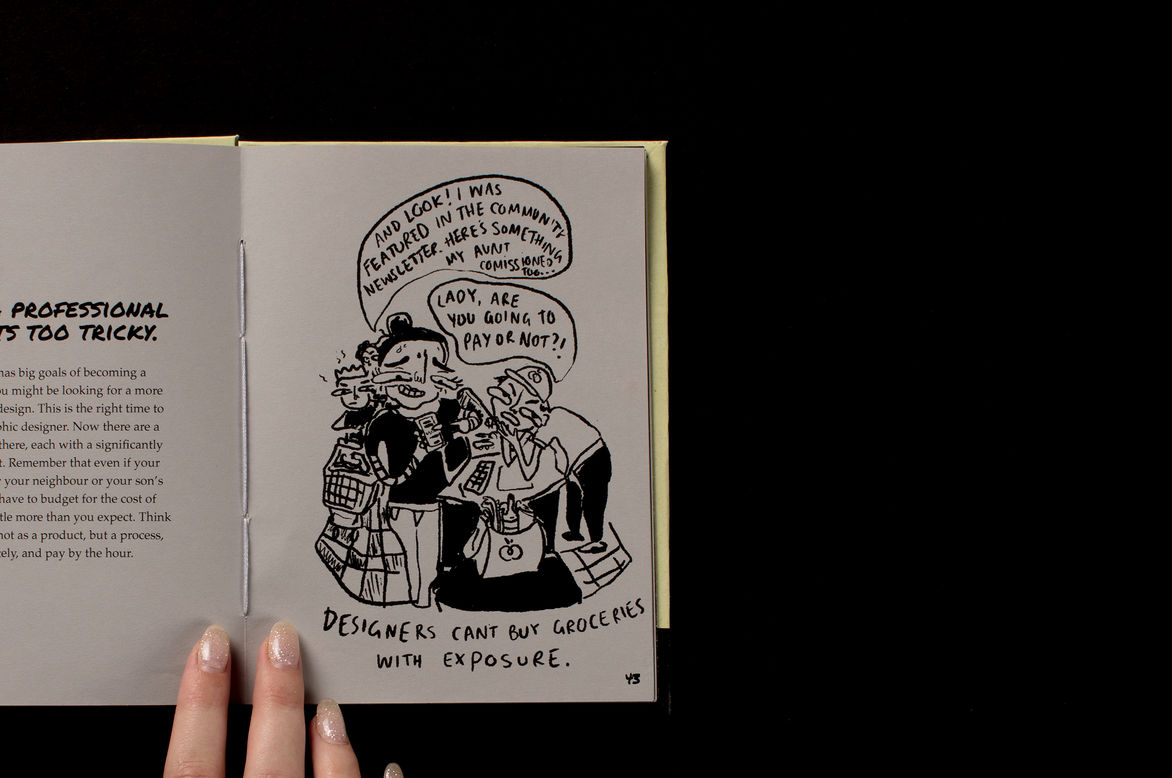 PROFESSIONAL
TS TOO TRICKY.
has big goals of becoming a
u might be looking for a more
design. This is the right time to
phic designer. Now there are a
there, each with a significantly
t. Remember that even if your
your neighbour or your son's
have to budget for the cost of
tle more than you expect. Think
not as a product, but a process,
ely, and pay by the hour.
AND LOOK! I WAS
FEATURED IN THE COMMUNITY
NEWSLETTER. HERE'S SOMETHING
MY AUNT
COMISSIONED
TOO...
LADY, ARE
YOU GOING TO
PAY OR NOT?!
DESIGNERS CANT BUY GROCERIES
WITH EXPOSURE.
43